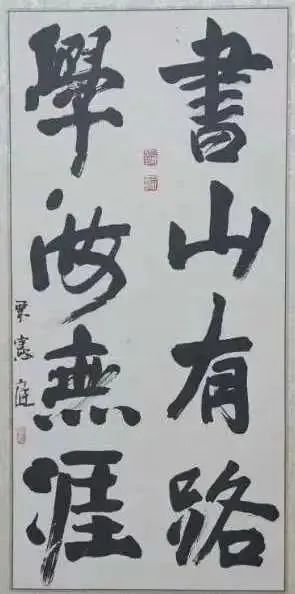 書山有路
學海無涯
栗憲庭